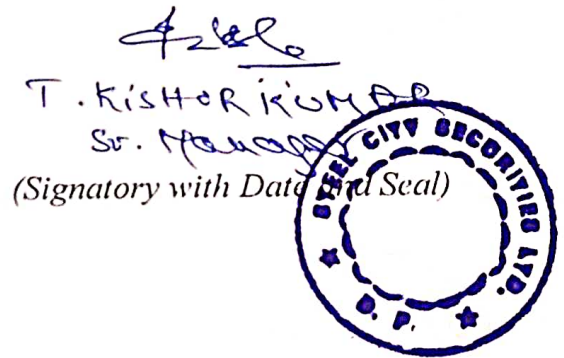 T. KISHOR KUMAR
Sr. Manager
(Signatory with Date and Seal)
STEEL CITY SECURITIES LTD.
★ D. P. ★